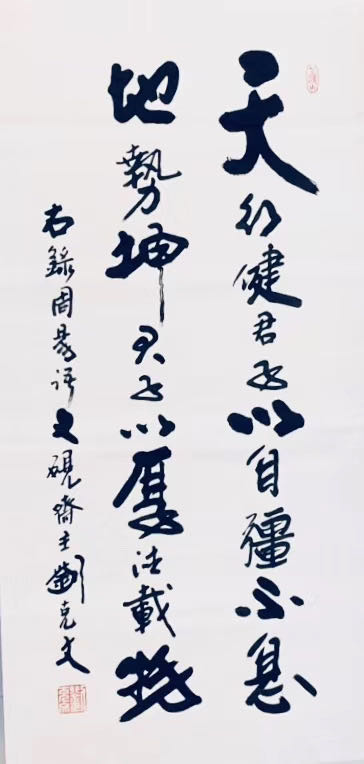 天行健君子以自彊不息
地勢坤君子以厚德載物
右錄周易語文硯齋主劉克文